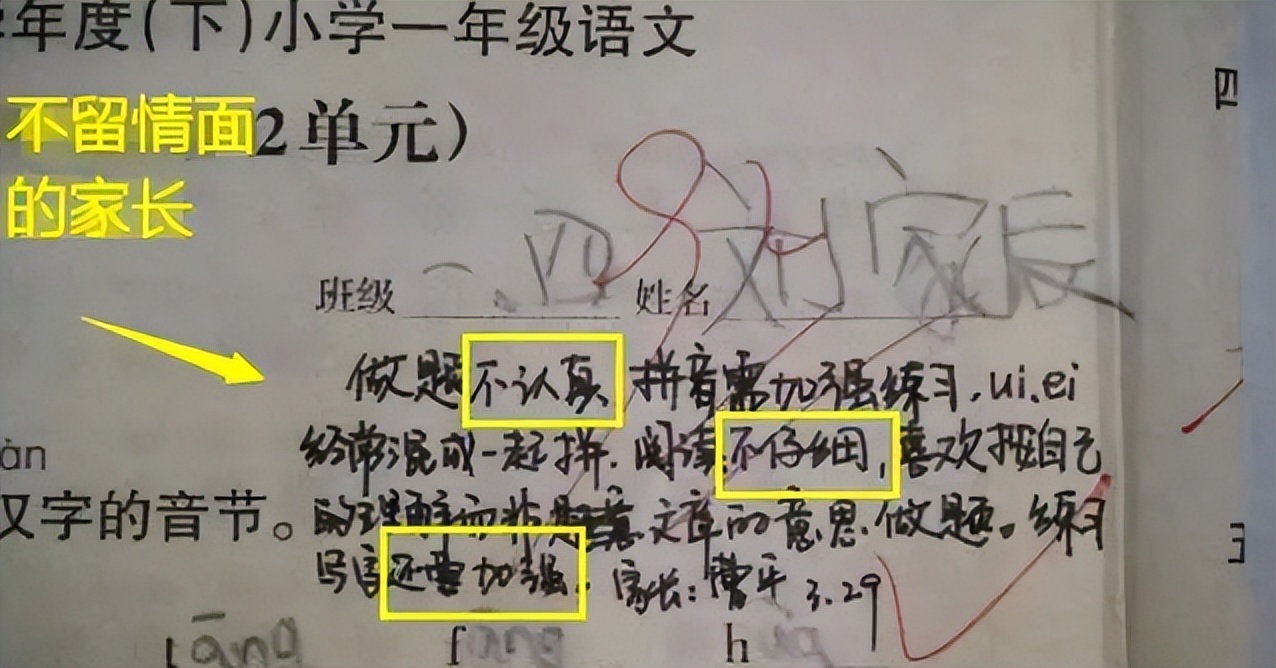 年度(下)小学一年级语文
不留情面
2单元)
的家长
四
班级 一.四 姓名 刘家辰
做题不认真 拼音需加强练习，ui.ei
经常混成一起拼. 阅读不仔细，喜欢按自己
àn
的理解而非题意文章的意思做题。练习
汉字的音节。
写字还需加强. 家长: 曹平 3.29
āng
f ang
h